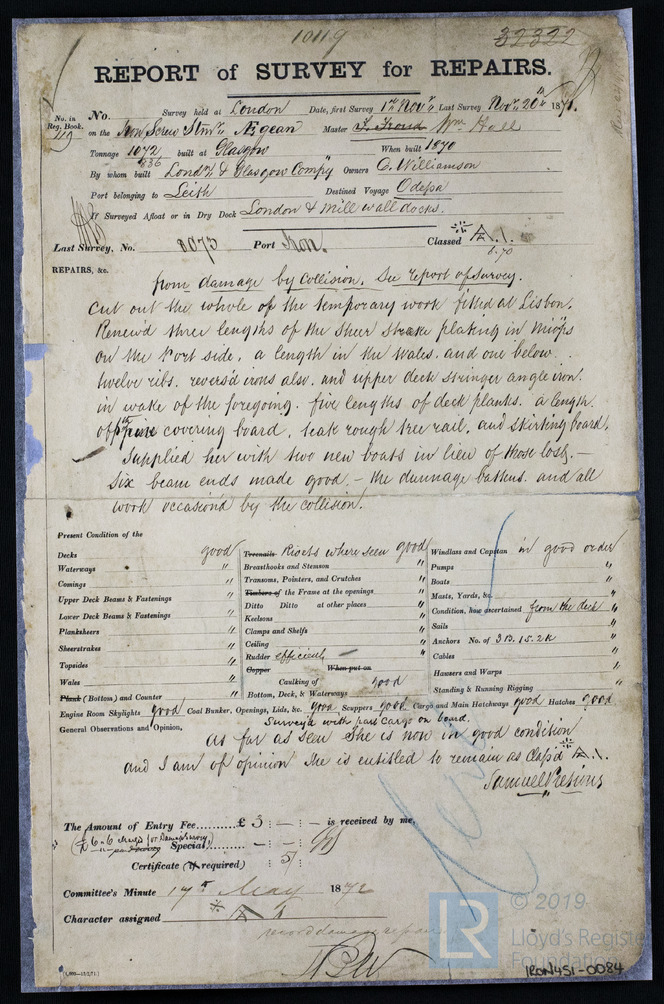 10119
32322
REPORT of SURVEY for REPAIRS.
No. in Reg. Book. 119
No. Survey held at London Date, first Survey 17 Novr Last Survey Novr 20th 1871.
on the Iron Screw Stmr Ægean Master Wm Hall
Tonnage 1072 built at Glasgow When built 1870
836
By whom built Lond. & Glasgow Compy Owners G. Williamson
Port belonging to Leith Destined Voyage Odessa
If Surveyed Afloat or in Dry Dock London & Millwall docks.
Last Survey, No. 8073 Port Lon. Classed A.1.
6.70
REPAIRS, &c.
from damage by Collision. See report of survey.
Cut out the whole of the temporary work fitted at Lisbon.
Renew'd three lengths of the sheer strake plating in midsps
on the Port side, a length in the Wales, and one below.
twelve ribs, revers'd irons also, and upper deck stringer angle iron.
in wake of the foregoing. five lengths of deck planks. a length
of covering board, teak rough tree rail, and skirting board.
Supplied her with two new boats in lieu of those lost. –
Six beam ends made good. – the dunnage battens. and all
work occasion'd by the collision.
Present Condition of the
Decks good
Waterways "
Comings "
Upper Deck Beams & Fastenings "
Lower Deck Beams & Fastenings "
Planksheers "
Sheerstrakes "
Topsides "
Wales "
Plank (Bottom) and Counter "
Treenails Rivets where seen good
Breasthooks and Stemson "
Transoms, Pointers, and Crutches "
Timbers of the Frame at the openings "
Ditto Ditto at other places "
Keelsons "
Clamps and Shelfs "
Ceiling "
Rudder efficient "
Copper When put on
Caulking of good
Bottom, Deck, & Waterways
Windlass and Capstan in good order
Pumps "
Boats "
Masts, Yards, &c. "
Condition, how ascertained from the deck "
Sails "
Anchors No. of 3B. 1S. 2K "
Cables "
Hawsers and Warps "
Standing & Running Rigging "
Engine Room Skylights good Coal Bunker, Openings, Lids, &c. good Scuppers good Cargo and Main Hatchways good Hatches good
General Observations and Opinion, Survey'd with part Cargo on board.
as far as seen She is now in good condition
and I am of opinion She is entitled to remain as Class'd A.1.
Samuel Presious
The Amount of Entry Fee......... £ 3 : – : – is received by me,
Special.......... – : – :
Certificate (if required) : 5/ :
Committee's Minute 17th May 1872
Character assigned A 1
record damage repairs
© 2019
LR
Lloyd's Register
Foundation
IRON451-0084